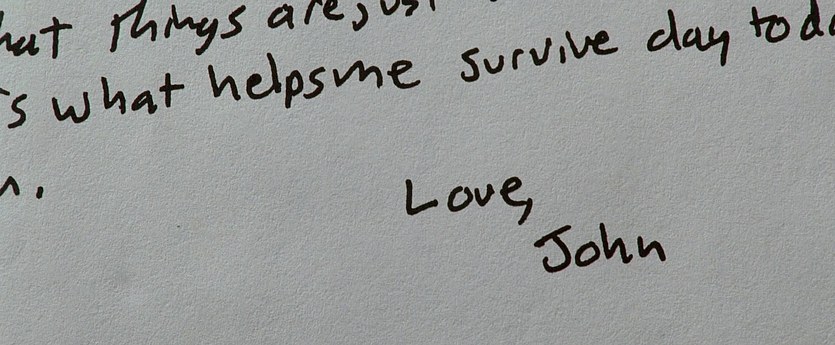 things are, just
what helps me survive day to
Love,
John